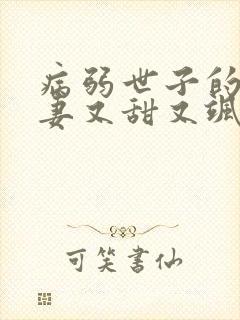 病弱世子的
妻又甜又飒
可笑书仙